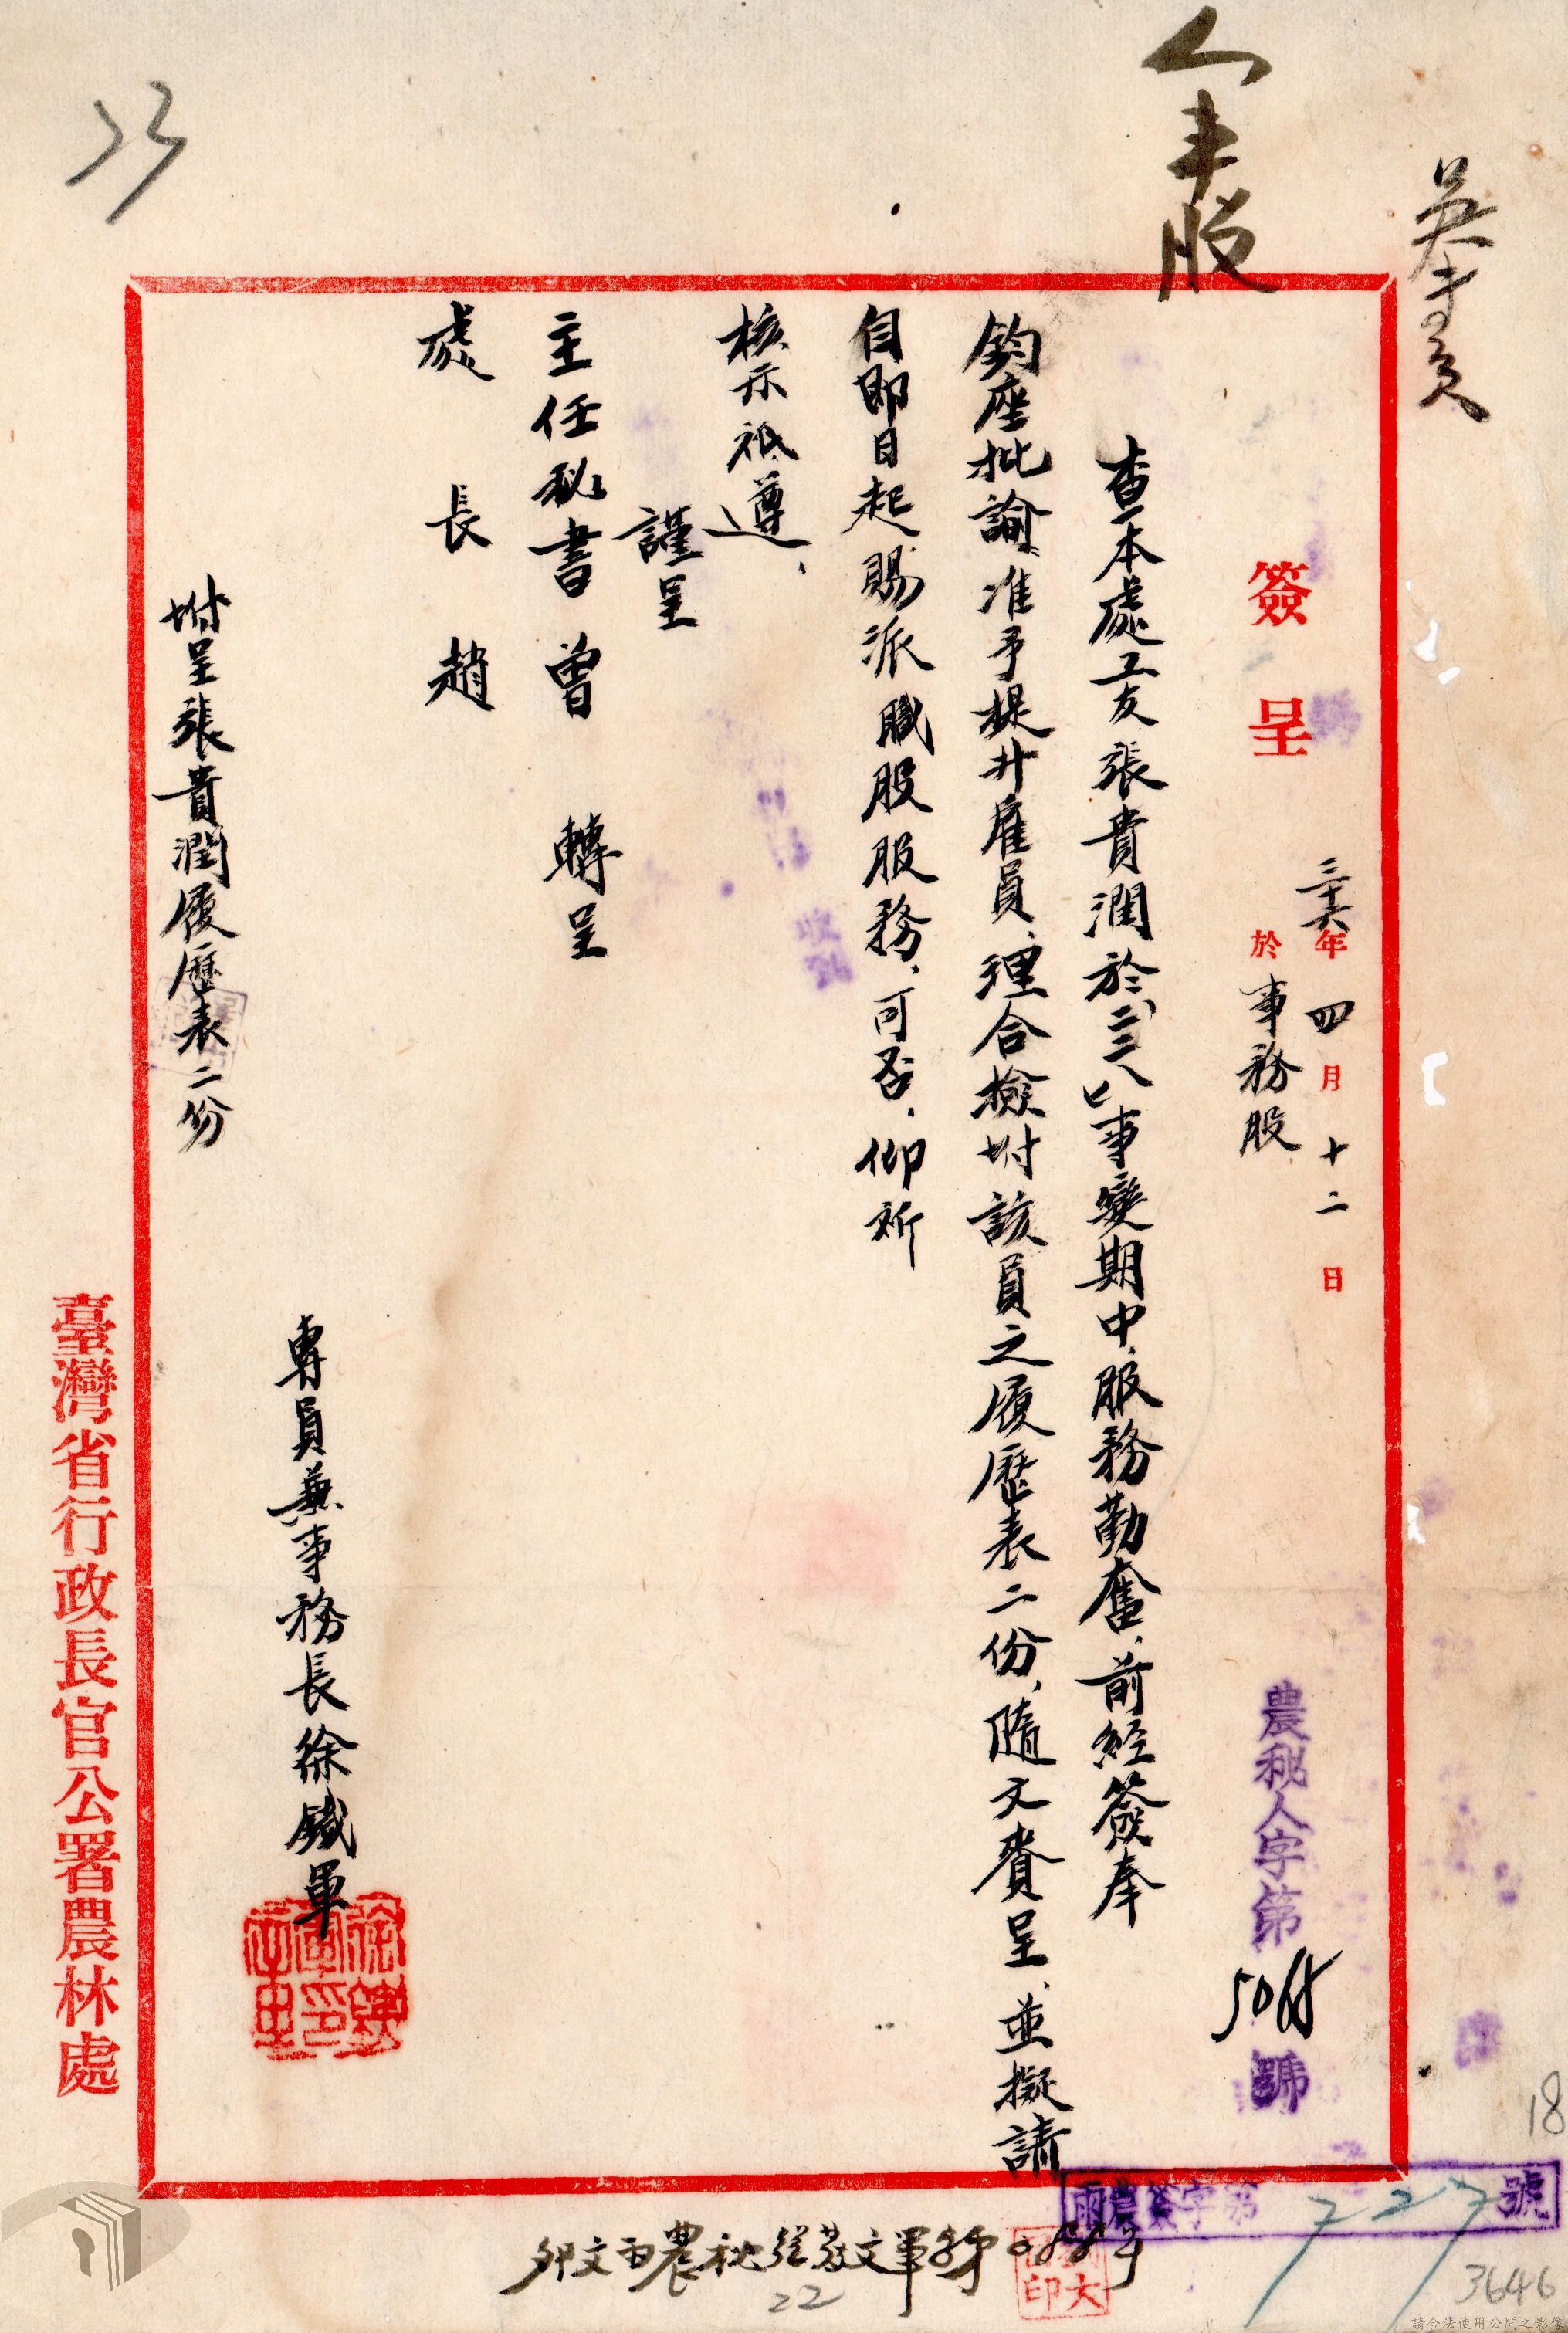 人事股
簽呈
三十六年四月十二日
於事務股
農秘人字第
號
查本處工友張貴潤於二二八事變期中、服務勤奮、前經簽奉
鈞座批諭、准予提升雇員、理合檢附該員之履歷表二份、隨文賫呈、並擬請
自即日起賜派職股服務、可否、仰祈
核示祗遵、
謹呈
主任秘書曾 轉呈
處長趙
專員兼事務長徐鐵軍
附呈張貴潤履歷表二份
臺灣省行政長官公署農林處
農簽字第727號
22
18
3646
請合法使用公開之影像